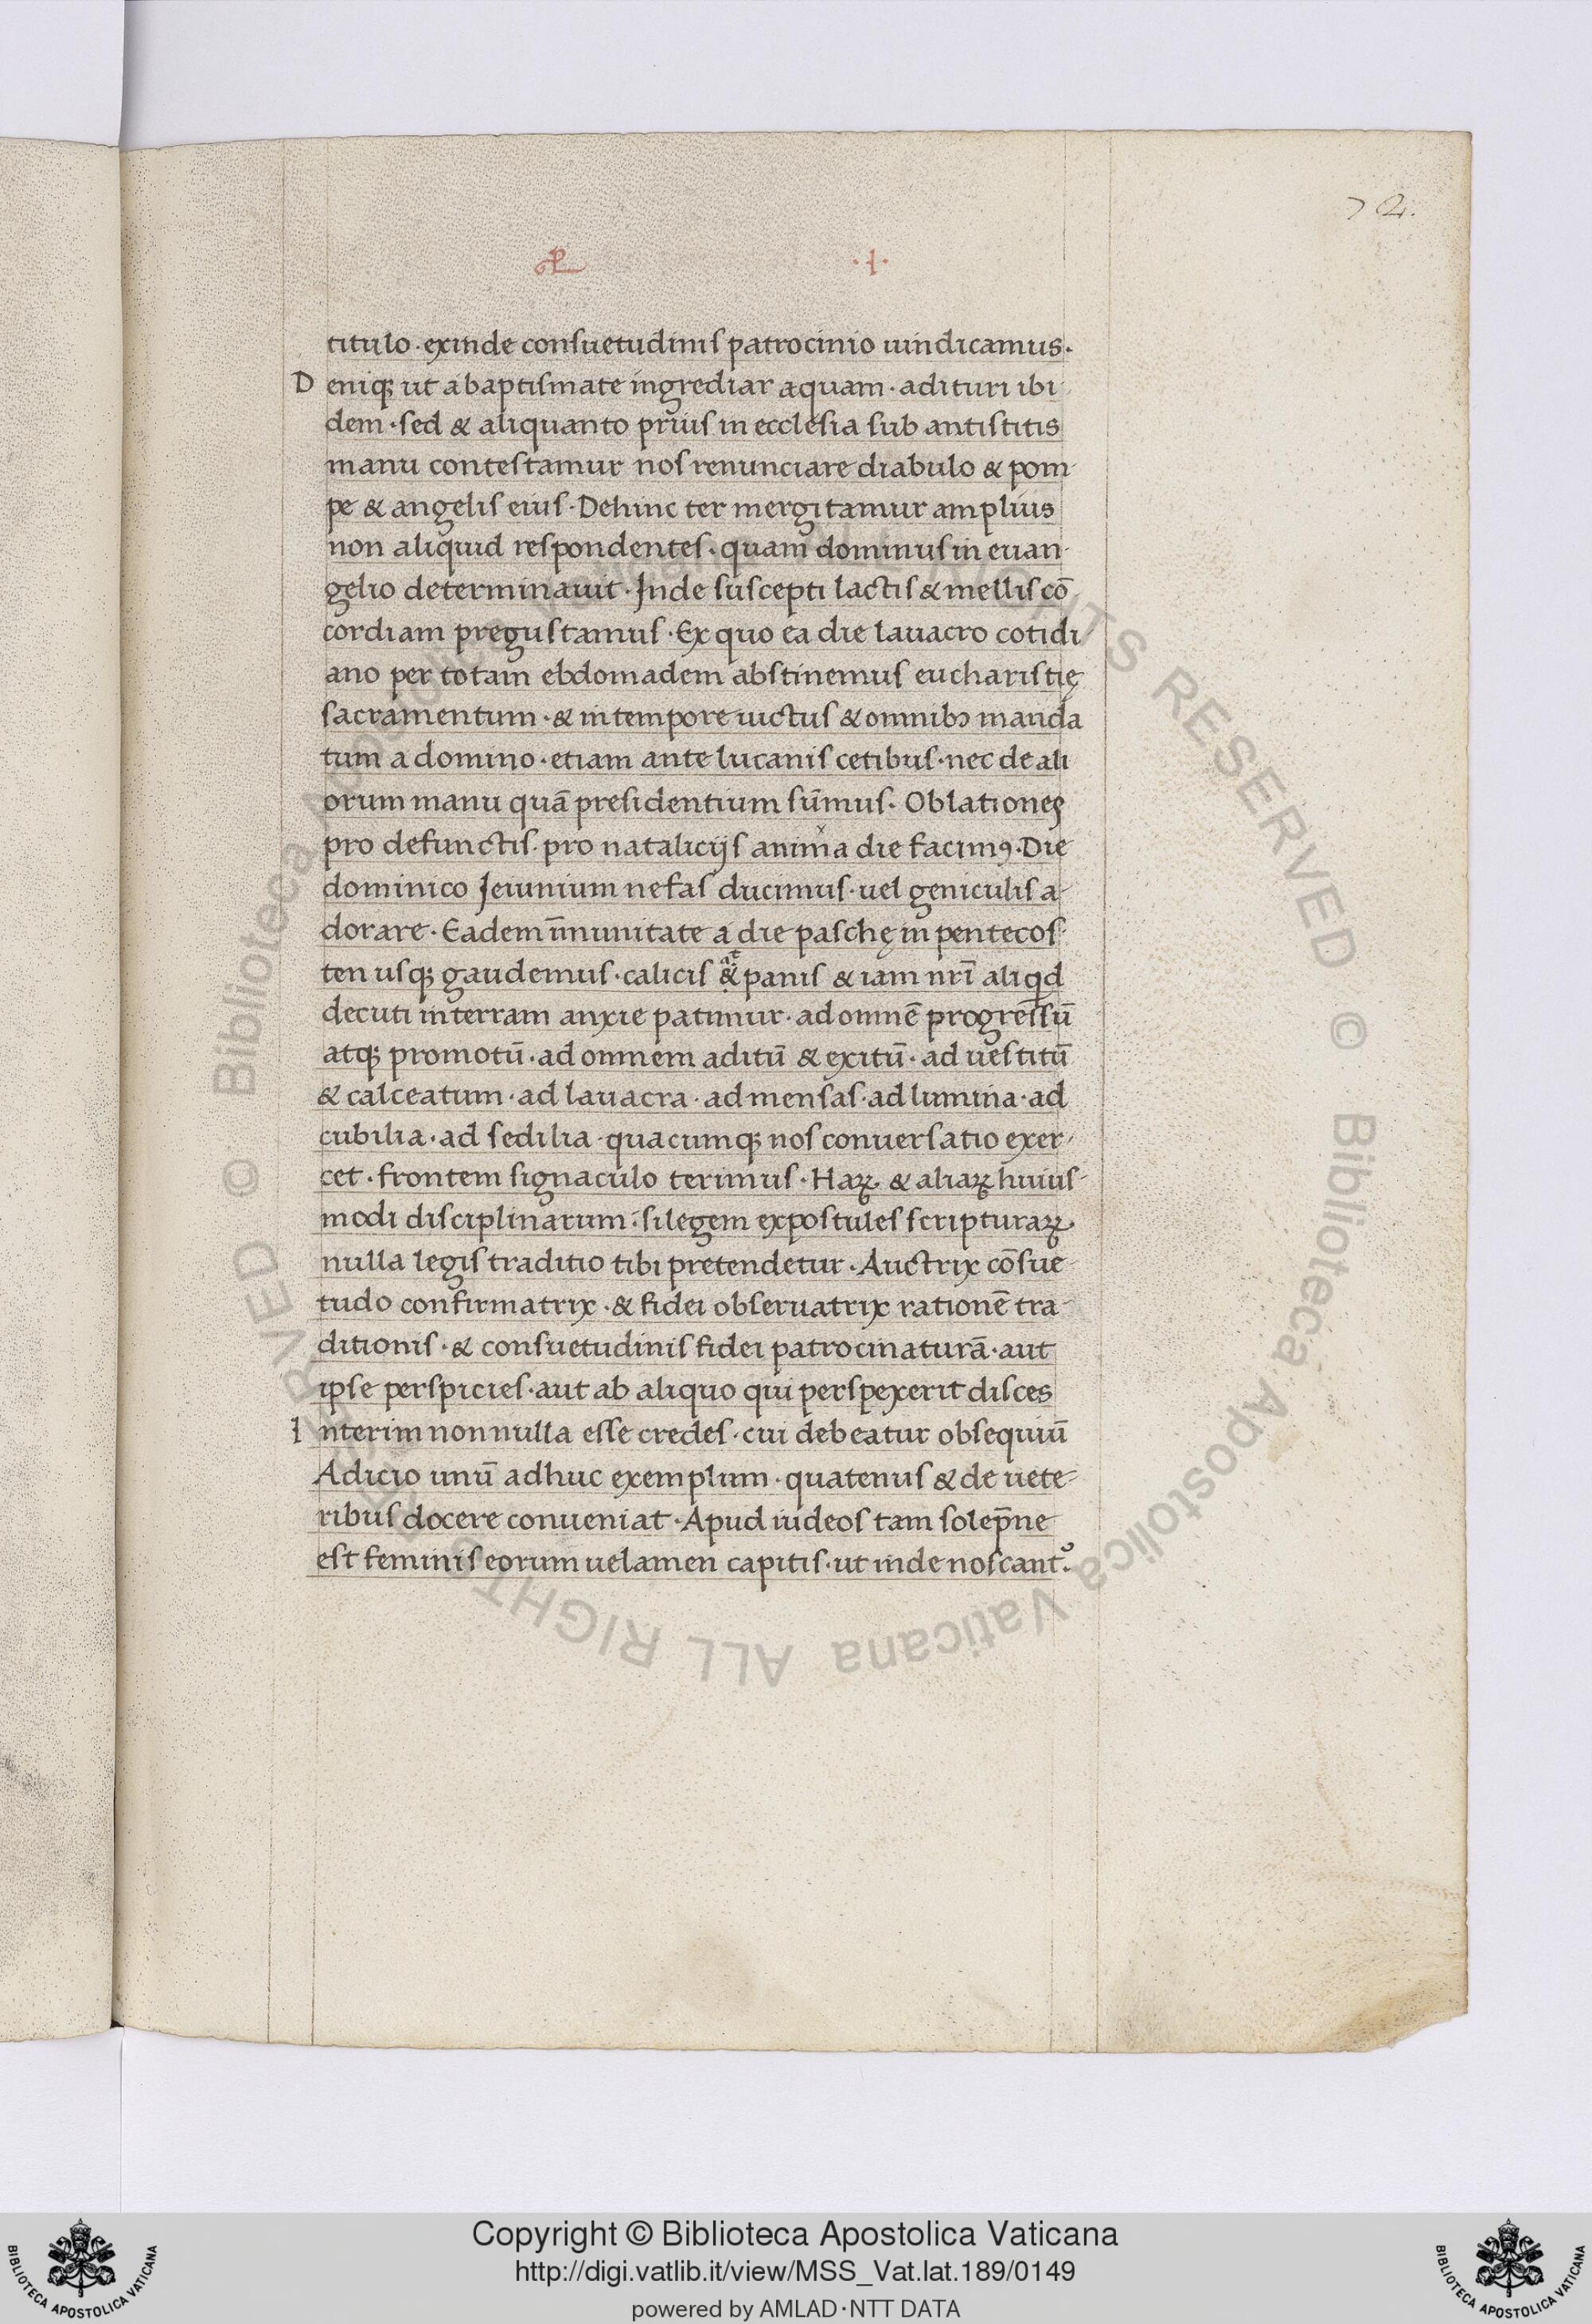 72.
·I·
titulo · exinde consuetudinis patrocinio uindicamus ·
Deniq; ut a baptismate ingrediar aquam · adituri ibi
dem · sed & aliquanto prius in ecclesia sub antistitis
manu contestamur nos renunciare diabulo & pom-
pe & angelis eius · Dehinc ter mergitamur amplius
non aliquid respondentes · quam dominus in euan-
gelio determinauit · Inde suscepti lactis & mellis cō
cordiam pregustamus · Ex quo ea die lauacro cotidi-
ano per totam ebdomadem abstinemus eucharistię
sacramentum · & in tempore uictus & omnibꝫ manda
tum a domino · etiam ante lucanis cetibus · nec de ali
orum manu quā presidentium sūmus · Oblationes
pro defunctis · pro natalicijs anima die facimꝰ · Die
dominico Ieiunium nefas ducimus · uel geniculis a-
dorare · Eadem īmunitate a die paschę in pentecos-
ten usq; gaudemus · calicis & panis & iam nrī aliqd
decuti in terram anxie patimur · ad omnē progressū
atq; promotū · ad omnem aditū & exitū · ad uestitū
& calceatum · ad lauacra · ad mensas · ad lumina · ad
cubilia · ad sedilia · quacumq; nos conuersatio exer-
cet · frontem signaculo terimus · Haꝝ & aliaꝝ huius-
modi disciplinarum · si legem expostules scripturaꝝ
nulla legis traditio tibi pretendetur · Auctrix cōsue-
tudo confirmatrix · & fidei obseruatrix rationē tra-
ditionis · & consuetudinis fidei patrocinaturā · aut
ipse perspicies · aut ab aliquo qui perspexerit disces
Interim nonnulla esse credes · cui debeatur obsequiū
Adicio unū adhuc exemplum · quatenus & de uete-
ribus docere conueniat · Apud iudeos tam solep̄ne
est feminis eorum uelamen capitis · ut inde noscantᷣ
Copyright © Biblioteca Apostolica Vaticana
http://digi.vatlib.it/view/MSS_Vat.lat.189/0149
powered by AMLAD·NTT DATA
BIBLIOTECA APOSTOLICA VATICANA
BIBLIOTECA APOSTOLICA VATICANA
© Biblioteca Apostolica Vaticana ALL RIGHTS RESERVED
© Biblioteca Apostolica Vaticana ALL RIGHTS RESERVED